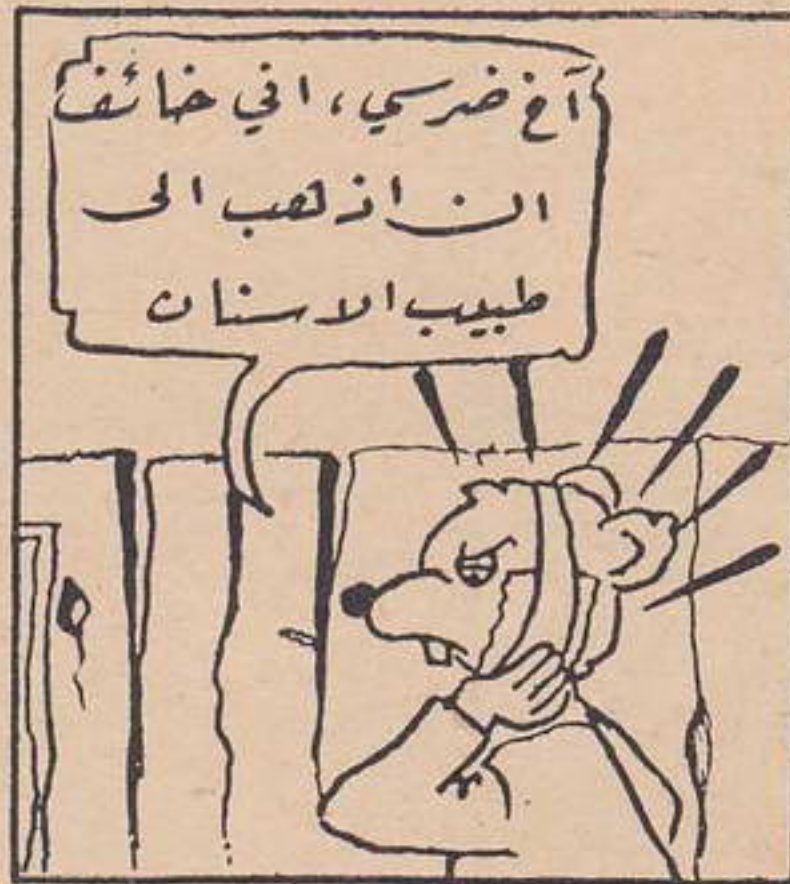 آخ ضرسي، اني خائف
ان اذهب الى
طبيب الاسنان